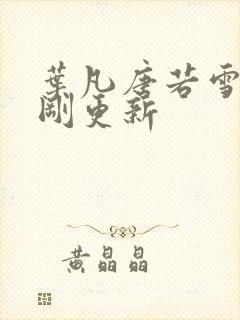 葉凡唐若雪
剛更新
黄晶晶